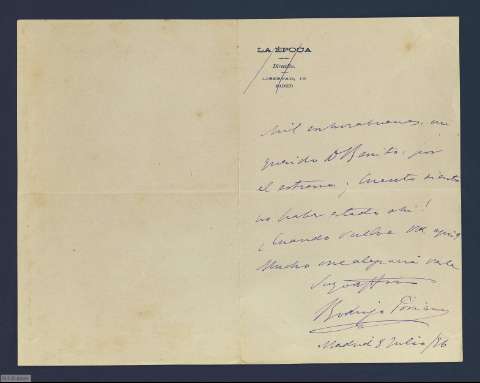 LA ÉPOCA
Dirección.
LIBERTAD, 18
MADRID
Mil enhorabuenas, mi
querido D Benito, por
el estreno; Cuánto siento
no haber estado ahí!
¿Cuando vuelve Vd aquí?
Mucho me alegraría verle
Suyo affmo
Rodrigo Soriano
Madrid 8 Julio /96